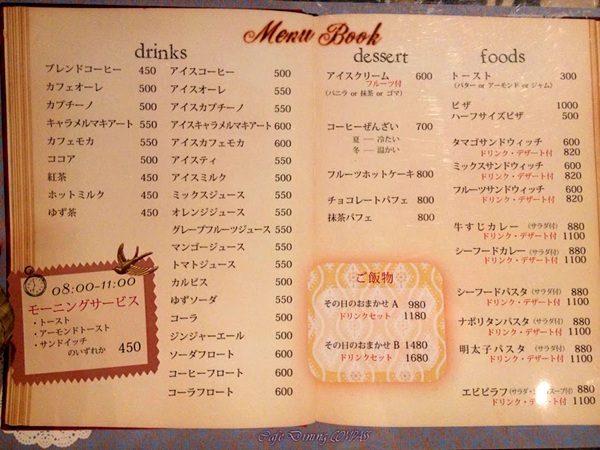 Menu Book
drinks
ブレンドコーヒー 450
カフェオーレ 500
カプチーノ 500
キャラメルマキアート 550
カフェモカ 550
ココア 500
紅茶 450
ホットミルク 450
ゆず茶 450
アイスコーヒー 500
アイスオーレ 550
アイスカプチーノ 550
アイスキャラメルマキアート 600
アイスカフェモカ 600
アイスティ 550
アイスミルク 500
ミックスジュース 550
オレンジジュース 550
グレープフルーツジュース 550
マンゴージュース 550
トマトジュース 550
カルピス 500
ゆずソーダ 500
コーラ 500
ジンジャーエール 500
ソーダフロート 600
コーヒーフロート 600
コーラフロート 600
08:00-11:00
モーニングサービス
・トースト
・アーモンドトースト
・サンドイッチ
のいずれか 450
dessert
アイスクリーム 600
フルーツ付
(バニラ or 抹茶 or ゴマ)
コーヒーぜんざい 700
夏 ― 冷たい
冬 ― 温かい
フルーツホットケーキ 800
チョコレートパフェ 800
抹茶パフェ 800
ご飯物
その日のおまかせ A 980
ドリンクセット 1180
その日のおまかせ B 1480
ドリンクセット 1680
foods
トースト 300
(バター or アーモンド or ジャム)
ピザ 1000
ハーフサイズピザ 500
タマゴサンドウィッチ 600
ドリンク・デザート付 820
ミックスサンドウィッチ 600
ドリンク・デザート付 820
フルーツサンドウィッチ 600
ドリンク・デザート付 820
牛すじカレー (サラダ付) 880
ドリンク・デザート付 1100
シーフードカレー (サラダ付) 880
ドリンク・デザート付 1100
シーフードパスタ (サラダ付) 880
ドリンク・デザート付 1100
ナポリタンパスタ (サラダ付) 880
ドリンク・デザート付 1100
明太子パスタ (サラダ付) 880
ドリンク・デザート付 1100
エビピラフ (サラダ・スープ付) 880
ドリンク・デザート付 1100
Cafe Dining